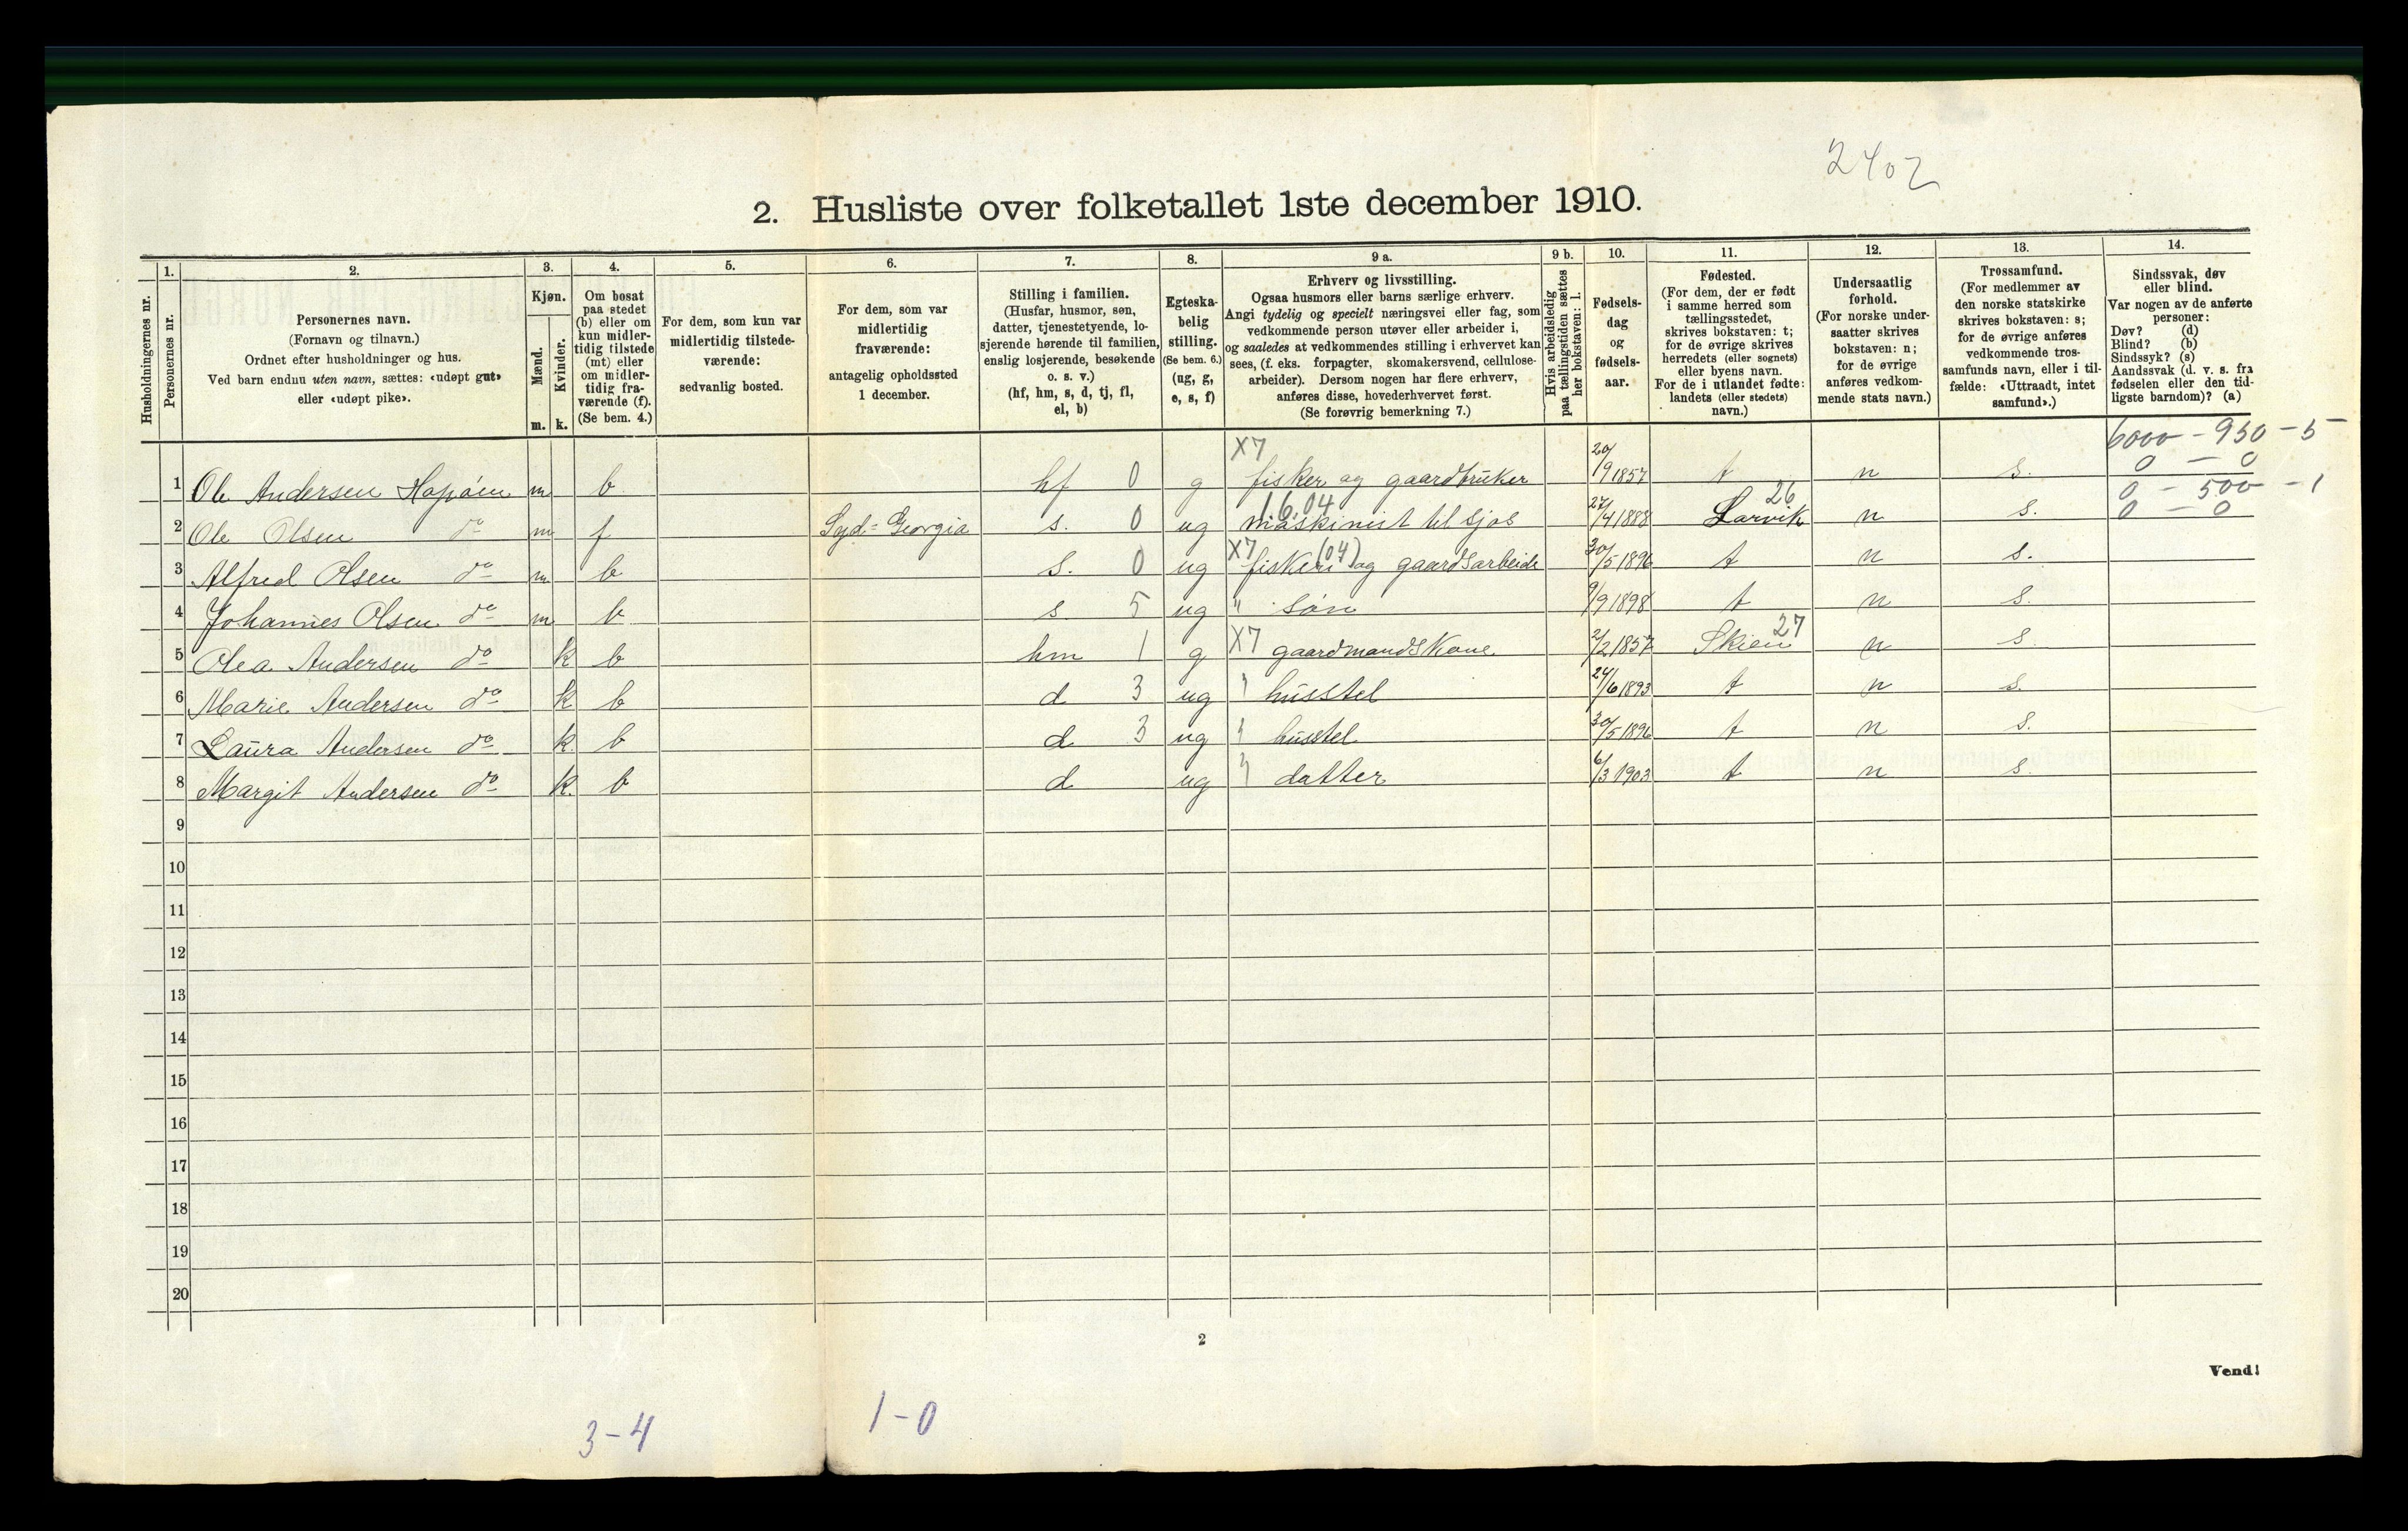 2402
2. Husliste over folketallet 1ste december 1910.
Husholdningernes nr.
1. Personernes nr.
2. Personernes navn.
(Fornavn og tilnavn.)
Ordnet efter husholdninger og hus.
Ved barn endnu uten navn, sættes: «udøpt gut»
eller «udøpt pike».
3. Kjøn.
Mænd. m.
Kvinder. k.
4. Om bosat
paa stedet
(b) eller om
kun midler-
tidig tilstede
(mt) eller
om midler-
tidig fra-
værende (f).
(Se bem. 4.)
5. For dem, som kun var
midlertidig tilstede-
værende:
sedvanlig bosted.
6. For dem, som var
midlertidig
fraværende:
antagelig opholdssted
1 december.
7. Stilling i familien.
(Husfar, husmor, søn,
datter, tjenestetyende, lo-
sjerende hørende til familien,
enslig losjerende, besøkende
o. s. v.)
(hf, hm, s, d, tj, fl,
el, b)
8. Egteska-
belig
stilling.
(Se bem. 6.)
(ug, g,
e, s, f)
9 a. Erhverv og livsstilling.
Ogsaa husmors eller barns særlige erhverv.
Angi tydelig og specielt næringsvei eller fag, som
vedkommende person utøver eller arbeider i,
og saaledes at vedkommendes stilling i erhvervet kan
sees, (f. eks. forpagter, skomakersvend, cellulose-
arbeider). Dersom nogen har flere erhverv,
anføres disse, hovederhvervet først.
(Se forøvrig bemerkning 7.)
9 b. Hvis arbeidsledig
paa tællingstiden sættes
her bokstaven: l.
10. Fødsels-
dag
og
fødsels-
aar.
11. Fødested.
(For dem, der er født
i samme herred som
tællingsstedet,
skrives bokstaven: t;
for de øvrige skrives
herredets (eller sognets)
eller byens navn.
For de i utlandet fødte:
landets (eller stedets)
navn.)
12. Undersaatlig
forhold.
(For norske under-
saatter skrives
bokstaven: n;
for de øvrige
anføres vedkom-
mende stats navn.)
13. Trossamfund.
(For medlemmer av
den norske statskirke
skrives bokstaven: s;
for de øvrige anføres
vedkommende tros-
samfunds navn, eller i til-
fælde: «Uttraadt, intet
samfund».)
14. Sindssvak, døv
eller blind.
Var nogen av de anførte
personer:
Døv? (d)
Blind? (b)
Sindssyk? (s)
Aandssvak (d. v. s. fra
fødselen eller den tid-
ligste barndom)? (a)
X7 6000 - 950 - 5
1 Ole Andersen m b hf 0 g fisker og gaardbruker 20/9 1857 t n s. 0 - 0
16.04 26 0 - 500 - 1
2 Ole Olsen do m f Syd-Georgia s. 0 ug maskinist til sjøs 27/4 1888 Larvik n s. 0 - 0
3 Alfred Olsen do m b s. 0 ug X7 fiskeri (04) og gaardsarbeide 30/5 1896 t n s.
4 Johannes Olsen do m b s. 5 ug " søn 9/9 1898 t n s.
5 Olea Andersen do k b hm 1 g X7 gaardmandskone 2/2 1857 Skien 27 n s.
6 Marie Andersen do k b d 3 ug " husstel 24/6 1893 t n s.
7 Laura Andersen do k. b d 3 ug " husstel 30/5 1896 t n s.
8 Margit Andersen do k. b d ug " datter 6/3 1903 t n s.
9
10
11
12
13
14
15
16
17
18
19
20
2
Vend!
3-4
1-0